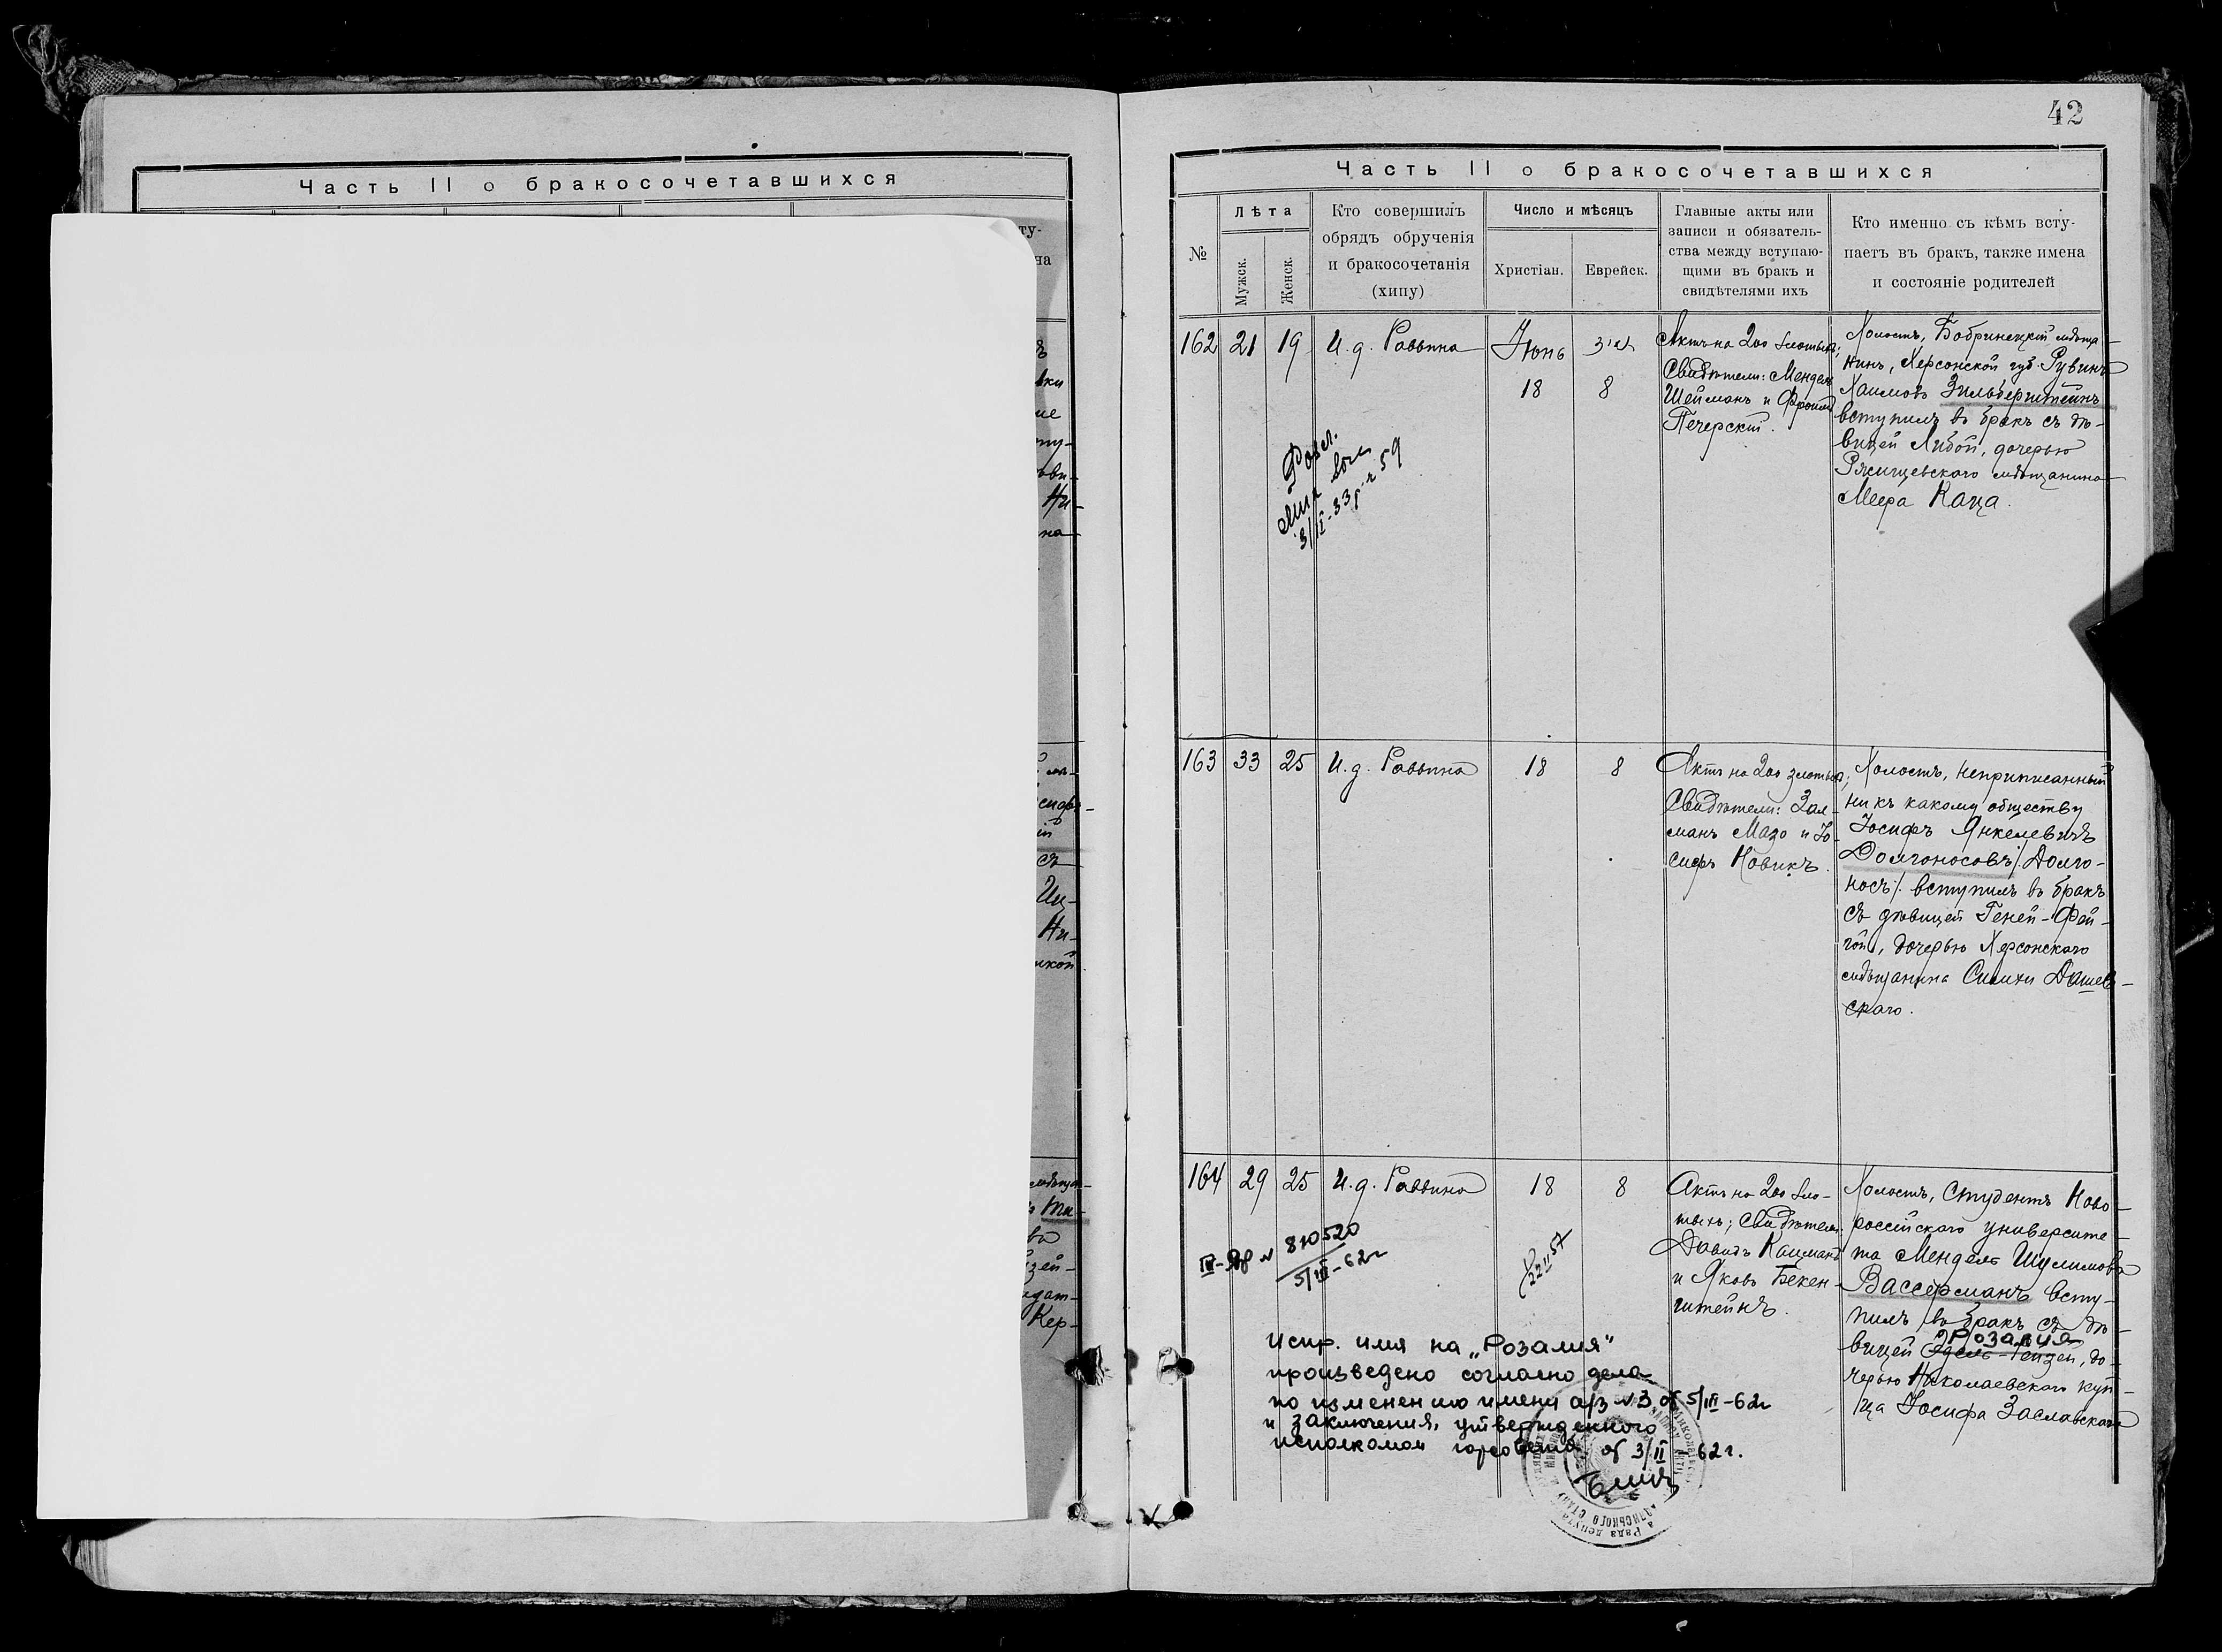 42
Часть II о бракосочетавшихся
ту-
на
вки
ту-
Ни-
на
съ
Иц-
Ни-
ской
Кер-
Часть II о бракосочетавшихся
№
Лѣта
Мужск.
Женск.
Кто совершилъ
обрядъ обрученія
и бракосочетанія
(хипу)
Число и мѣсяцъ
Христіан.
Еврейск.
Главные акты или
записи и обязатель-
ства между вступаю-
щими въ бракъ и
свидѣтелями ихъ
Кто именно съ кѣмъ всту-
паетъ въ бракъ, также имена
и состояніе родителей
162 21 19 И. д. Раввина
Іюнь
18 8
Актъ на 200 злотыхъ;
Свидѣтели: Мендель
Шейманъ и Фроимъ
Печерскій.
Холостъ, Бобринецкій мѣща-
нинъ, Херсонской губ. Рувинъ
Хаимовъ Зильберштейнъ
вступилъ въ бракъ съ дѣ-
вицей Либой, дочерью
Ржищевскаго мѣщанина
Меера Каца.
3/II-33 г. 59
163 33 25 И. д. Раввина 18 8
Актъ на 200 злотыхъ;
Свидѣтели: Зал-
манъ Мазо и Іо-
сифъ Новикъ.
Холостъ, неприписанный
ни къ какому обществу
Іосифъ Янкелевичъ
Долгоносовъ /. Долго-
носъ /. вступилъ въ бракъ
съ дѣвицей Геней-Фей-
гой, дочерью Херсонскаго
мѣщанина Симхи Дашев-
скаго.
164 29 25 И. д. Раввина 18 8
Актъ на 200 зло-
тыхъ; Свидѣтели:
Давидъ Кацманъ
и Яковъ Бекен-
штейнъ.
Холостъ, студентъ Ново-
россійскаго университе-
та Мендель Шулимовъ
Вассерманъ всту-
пилъ въ бракъ съ дѣ-
Розалия
вицей Эдель-Рейзей, до-
черью Николаевскаго куп-
ца Іосифа Заславскаго
810520
5/III-62г
22 II 57
Испр. имя на „Розалия"
произведено согласно дела
по изменению имени а/з №3 от 5/III-62г
и заключения, утвержденного
исполкомом горсовета от 3/II-62г.